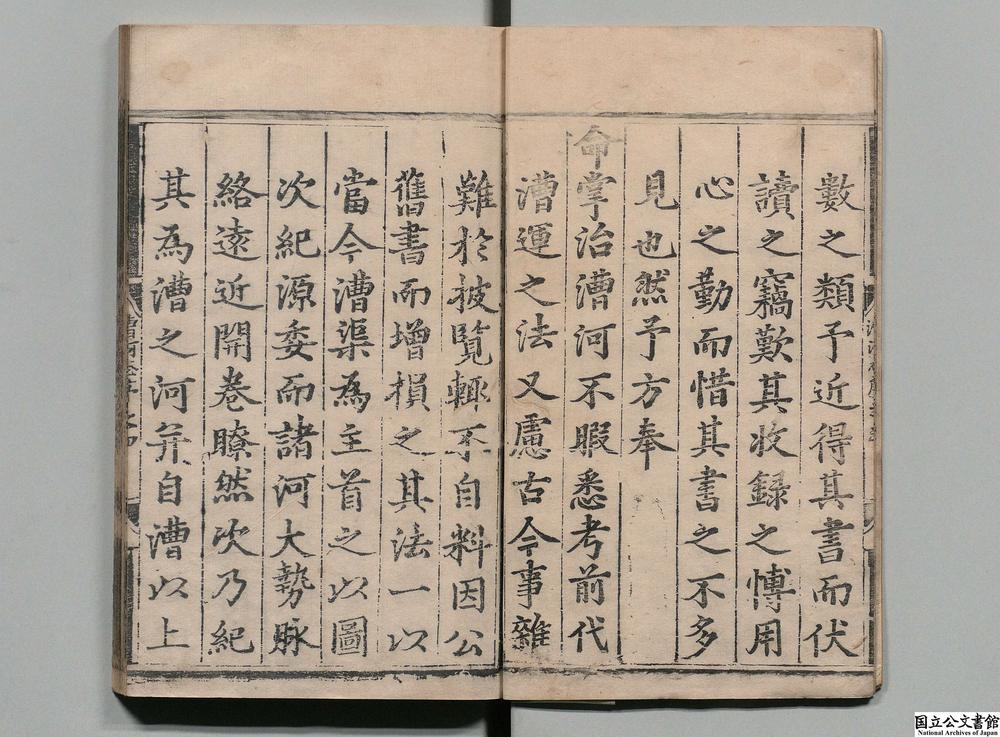 數之類予近得其書而伏
讀之竊歎其收録之愽用
心之勤而惜其書之不多
見也然予方奉
命掌治漕河不暇悉考前代
漕運之法又慮古今事雜
難於披覧輙不自料因公
舊書而增損之其法一以
當今漕渠為主首之以圖
次紀源委而諸河大勢脉
絡遠近開巻瞭然次乃紀
其為漕之河并自漕以上
国立公文書館
National Archives of Japan